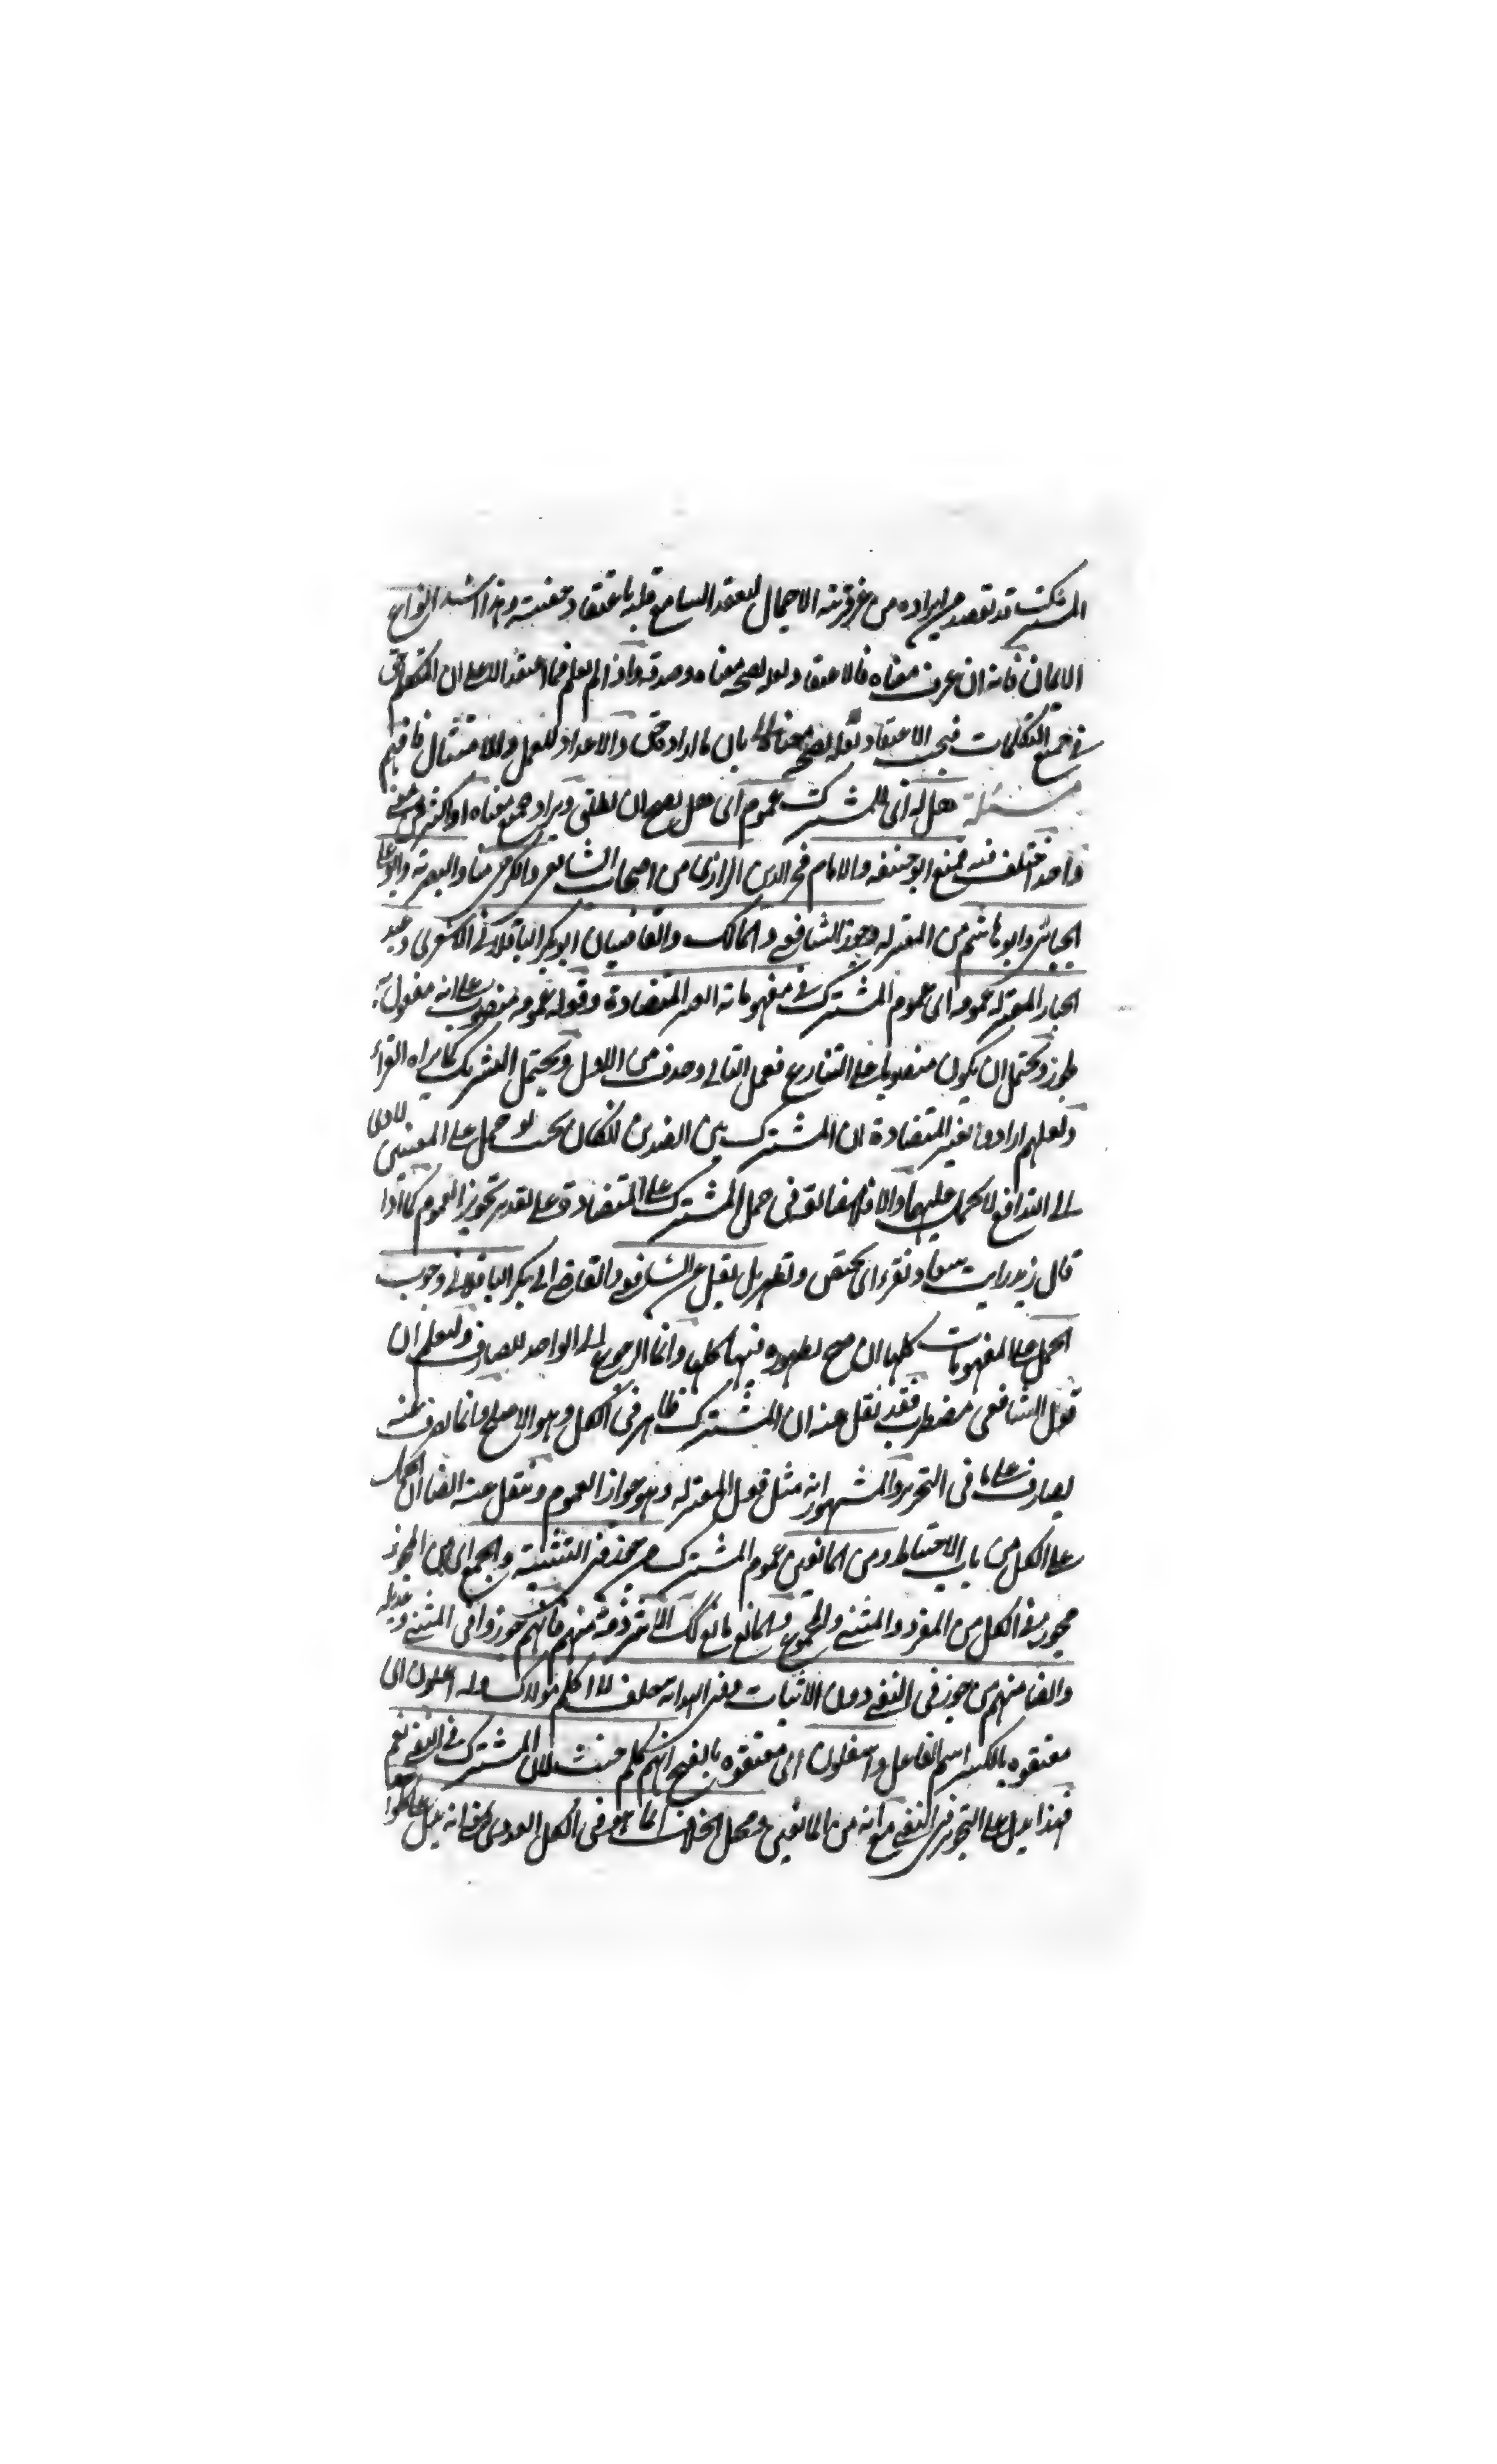 المشترك قد تقصد من ايراده من غير قرينة الاجمال ليعقد السامع قلبه باعتقاد حقيته وهذا اشد انواع
الايمان فانه ان عرف معناه فالاعتقاد له لصحة معناه وصدقه واذا لم يعلم فما اعتقد الا على ان المتكلم
في جميع التكلمات فيجب الاعتقاد بان ما اراد حق والاعداد للعمل والامتثال فافهم
مسئلة هل له اى للمشترك عموم اى هل يصح ان يطلق ويراد جميع معناه او اكثر من معنى
واحد اختلف فيه فمنع ابو حنيفه والامام فخر الدين الرازى من اصحاب الشافعى والكرخى منا والبصرى وابو على
الجبائى وابو هاشم من المعتزله وجوز الشافعى والمالك والقاضيان ابو بكر الباقلانى الاشعرى وعبد
الجبار المعتزله عمومه اى عموم المشترك في مفهوماته الغير المتضادة وقوله عمومه منصوب على انه مفعول
جوز ويحتمل ان يكون منصوبا على التنازع فعمل الثانى وحذف من الاول ويحتمل التشريك كما يراه الفراء
ولعلهم ارادوا بغير المتضادة ان المشترك بين الضدين لو كان بحيث لو حمل على المعنيين لادى
الى التدافع لا يحمل عليهما والا فلا مضائقة في حمل المشترك على المتضادة على تقدير تجويز العموم كما اذا
قال زيد رايت سعاد تقرء اى تحيض وتطهر بل نقل عن الشافعى والقاضى ابى بكر الباقلانى وجوب
الحمل على المفهومات كلها ان صح لظهوره فيها كلها وانما الرجوع الى الواحد للصارف وليعلم ان
قول الشافعى مضطرب فقد نقل عنه ان المشترك ظاهر في الكل وهو الاصح وانما يصرف عنه
بصارف على ما في التحرير والمشهور انه مثل قول المعتزله وهو جواز العموم ونقل عنه ايضا ان الحمل
على الكل من باب الاحتياط ومن المانعين عموم المشترك من جوز في التثنية والجمع اى من المجوز
مجوز في الكل من المفرد والمثنى والمجموع والمانع مانع كذلك الا شرذمة منهم فانهم جوزوا في المثنى وعديله
وايضا منهم من جوز في النفى دون الاثبات وفى الهداية حلف لا اكلم مولاك وله اعلون اى
معتقوه بالكسر اسم الفاعل واسفلون اى معتقوه بالفتح ايهم كلم حنث لان المشترك في النفى يعم
فهذا يدل على التجويز في النفى مع انه من المانعين ومحل الخلاف انما هو في الكل العددى بمعنى انه يدل على كل